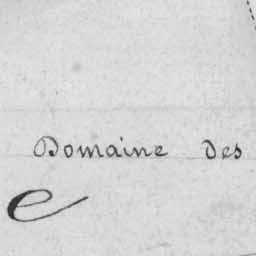 Domaine des
e